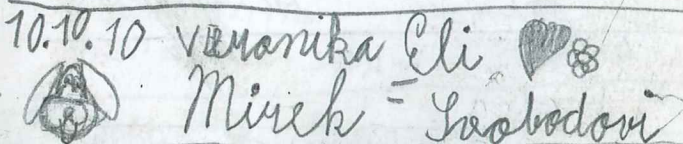 10.10.10 Veronika Eli
Mirek = Svobodovi